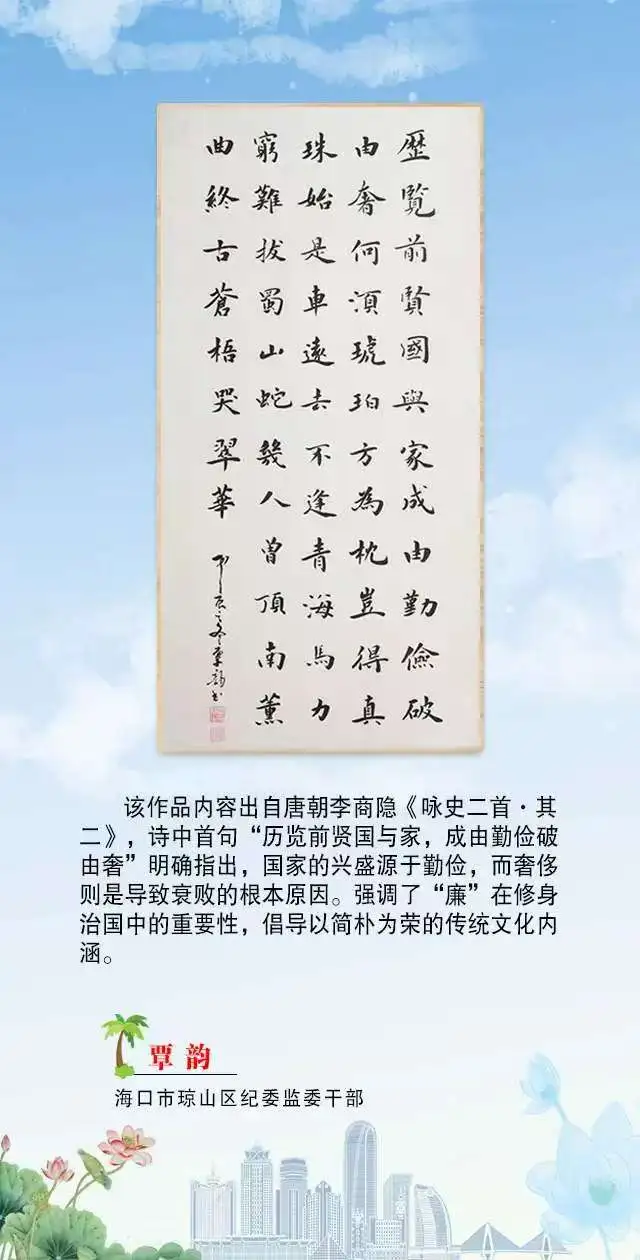 歷覽前賢國與家成由勤儉破
由奢何湏琥珀方為枕豈得真
珠始是車遠去不逢青海馬力
窮難拔蜀山蛇幾人曾頂南薰
曲終古蒼梧哭翠華
甲辰之冬覃韵书
该作品内容出自唐朝李商隐《咏史二首·其
二》，诗中首句“历览前贤国与家，成由勤俭破
由奢”明确指出，国家的兴盛源于勤俭，而奢侈
则是导致衰败的根本原因。强调了“廉”在修身
治国中的重要性，倡导以简朴为荣的传统文化内
涵。
覃韵
海口市琼山区纪委监委干部